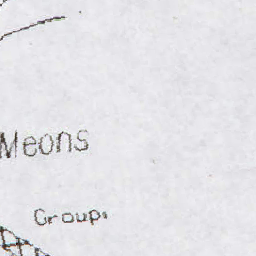 Meons
Group.